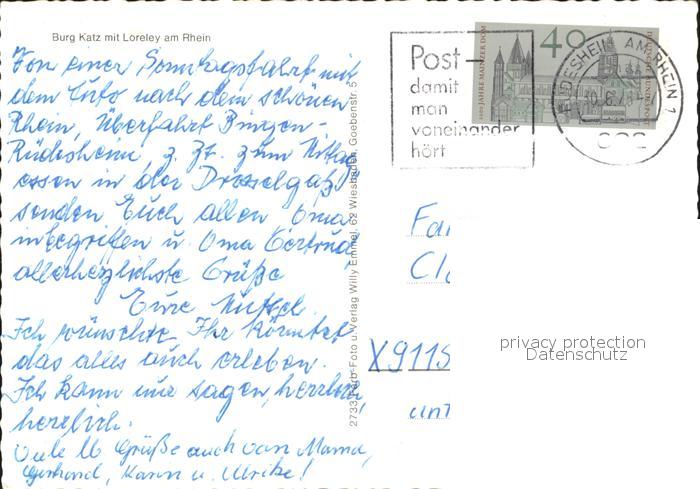 Burg Katz mit Loreley am Rhein
Von einer Sonntagsfahrt mit
dem Auto nach dem schönen
Rhein, Überfahrt Bingen-
Rüdesheim, z. Zt. zum Mittag
essen in der Drosselgaß
senden Euch allen Oma
inbegriffen u. Oma Gertrud,
allerherzlichste Grüße
Eure
Ich wünschte Ihr könntet
das alles auch erleben.
Ich kann nur sagen, herrlich,
herrlich.
Viele Grüße auch von Mama,
Gerhard, Karin u. Ulrike!
2733 Farb-Foto u. Verlag Willy Emmel, 62 Wiesbaden, Goebenstr. 5
Post-
damit
man
voneinander
hört
40
1000 JAHRE MAINZER DOM
RÜDESHEIM AM RHEIN 1
Fa
Cl
X9115
unt
privacy protection
Datenschutz